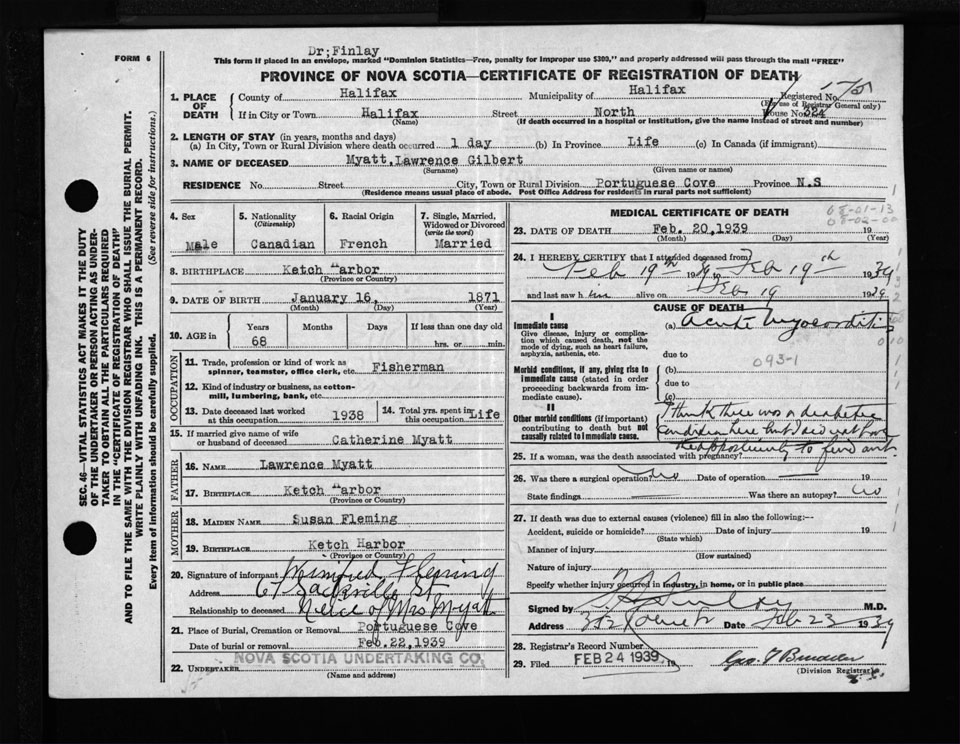 Dr; Finlay
FORM 6
This form if placed in an envelope, marked "Dominion Statistics—Free, penalty for improper use $300," and properly addressed will pass through the mail "FREE"
PROVINCE OF NOVA SCOTIA—CERTIFICATE OF REGISTRATION OF DEATH
1. PLACE OF DEATH County of Halifax Municipality of Halifax Registered No.
(For use of Registrar General only)
If in City or Town Halifax Street North House No. 324
(Name) (If death occurred in a hospital or institution, give the name instead of street and number)
2. LENGTH OF STAY (in years, months and days)
(a) In City, Town or Rural Division where death occurred 1 day (b) In Province Life (c) In Canada (if immigrant)
3. NAME OF DECEASED Myatt, Lawrence Gilbert
(Surname) (Given name or names)
RESIDENCE No. Street City, Town or Rural Division Portuguese Cove Province N.S
(Residence means usual place of abode. Post Office Address for residents in rural parts not sufficient)
SEC. 46—VITAL STATISTICS ACT MAKES IT THE DUTY
OF THE UNDERTAKER OR PERSON ACTING AS UNDER-
TAKER TO OBTAIN ALL THE PARTICULARS REQUIRED
IN THE "CERTIFICATE OF REGISTRATION OF DEATH"
AND TO FILE THE SAME WITH THE DIVISION REGISTRAR WHO SHALL ISSUE THE BURIAL PERMIT.
WRITE PLAINLY WITH UNFADING INK. THIS IS A PERMANENT RECORD.
Every item of information should be carefully supplied. (See reverse side for instructions.)
4. Sex
Male
5. Nationality
(Citizenship)
Canadian
6. Racial Origin
French
7. Single, Married,
Widowed or Divorced
(write the word)
Married
8. BIRTHPLACE Ketch Harbor
(Province or Country)
9. DATE OF BIRTH January 16, 1871
(Month) (Day) (Year)
10. AGE in Years Months Days If less than one day old
68 hrs. or min.
OCCUPATION
11. Trade, profession or kind of work as
spinner, teamster, office clerk, etc. Fisherman
12. Kind of industry or business, as cotton-
mill, lumbering, bank, etc.
13. Date deceased last worked
at this occupation 1938
14. Total yrs. spent in
this occupation Life
15. If married give name of wife
or husband of deceased Catherine Myatt
FATHER
16. Name Lawrence Myatt
17. Birthplace Ketch Harbor
(Province or Country)
MOTHER
18. Maiden Name Susan Fleming
19. Birthplace Ketch Harbor
(Province or Country)
20. Signature of informant Winnifred Fleming
Address 67 Sackville St
Relationship to deceased Niece of Mrs Myatt
21. Place of Burial, Cremation or Removal Portuguese Cove
Date of burial or removal Feb.22,1939
22. Undertaker NOVA SCOTIA UNDERTAKING CO.
(Name and address)
MEDICAL CERTIFICATE OF DEATH
23. DATE OF DEATH Feb. 20,1939 19
(Month) (Day) (Year)
24. I HEREBY CERTIFY that I attended deceased from
Feb 19th 1939 to Feb 19th 1939
and last saw him alive on Feb 19 1939
CAUSE OF DEATH
I
Immediate cause (a) Acute Myocarditis
Give disease, injury or complica-
tion which caused death, not the
mode of dying, such as heart failure,
asphyxia, asthenia, etc.
due to
093-1
Morbid conditions, if any, giving rise to
immediate cause (stated in order
proceeding backwards from im-
mediate cause).
(b)
due to
(c)
II
Other morbid conditions (if important)
contributing to death but not
causally related to immediate cause.
I think there was a diabetic
condition here but I did not have
the opportunity to find out.
25. If a woman, was the death associated with pregnancy?
26. Was there a surgical operation? No Date of operation 19
State findings Was there an autopsy? No
27. If death was due to external causes (violence) fill in also the following:—
Accident, suicide or homicide? Date of injury 19
(State which)
Manner of injury
(How sustained)
Nature of injury
Specify whether injury occurred in industry, in home, or in public place
Signed by Finlay M.D.
Address Date Feb 23 1939
28. Registrar's Record Number
29. Filed FEB 24 1939 19
(Division Registrar)